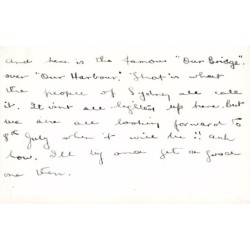 And here is the famous "Our Bridge".
over "Our Harbour". That is what
the people of Sydney all call
it. It isnt all lighted up here. But
we are all looking forward to
8th July when it will be !! ask
how. I'll try and get a good
one then.